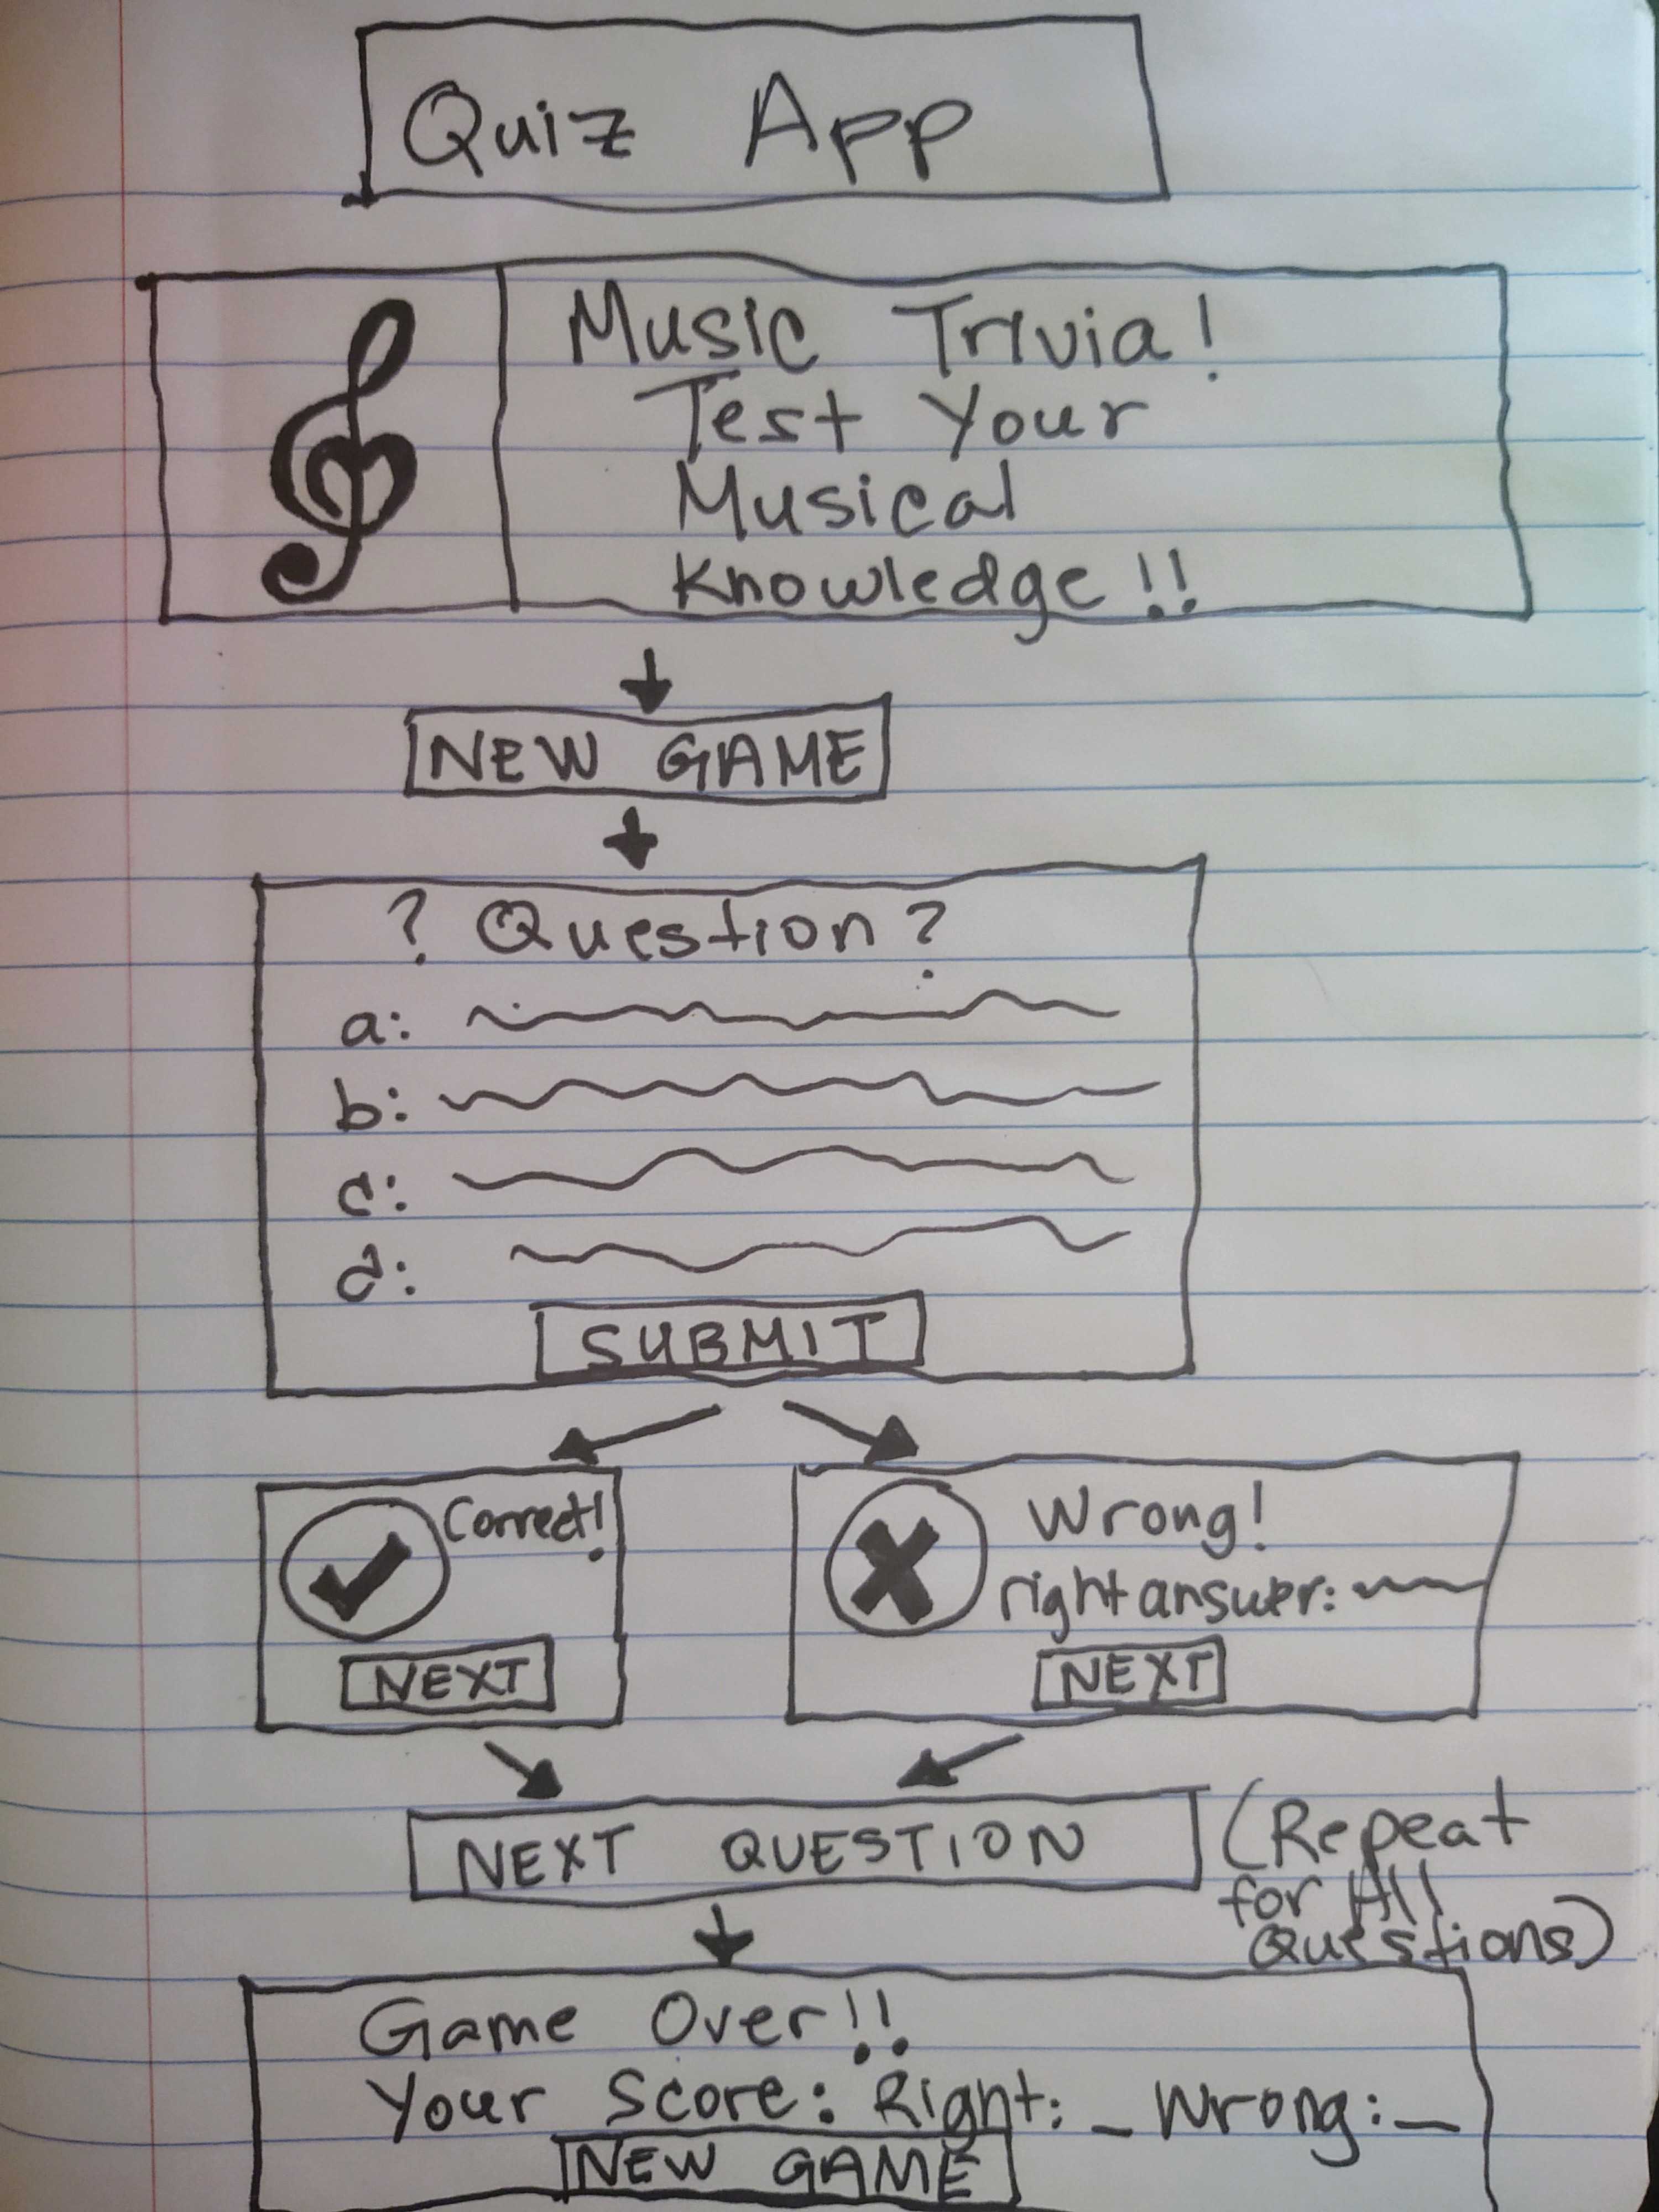 Quiz App
Music Trivia!
Test Your
Musical
Knowledge!!
NEW GAME
? Question?
a:
b:
c:
d:
SUBMIT
Correct!
NEXT
Wrong!
right answer:
NEXT
NEXT QUESTION
(Repeat
for All
Questions)
Game Over!!
Your Score: Right: _ Wrong: _
NEW GAME